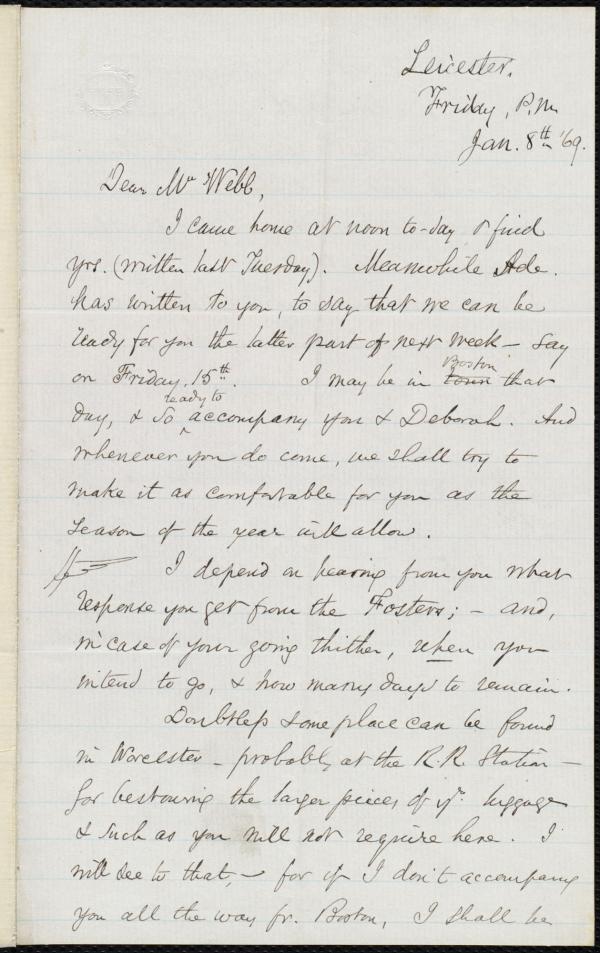 Leicester.
Friday, P.M.
Jan. 8th '69.
Dear Mr Webb,
I came home at noon to-day & find
yrs. (written last Tuesday). Meanwhile Ade.
has written to you, to say that we can be
ready for you the latter part of next week – say
on Friday, 15th. I may be in town Boston that
day, & so ready to accompany you & Deborah. And
whenever you do come, we shall try to
make it as comfortable for you as the
season of the year will allow.
I depend on hearing from you what
response you get from the Fosters; – and,
in case of your going thither, when you
intend to go, & how many days to remain.
Doubtless some place can be found
in Worcester – probably at the R.R. Station –
for bestowing the larger pieces of yr. luggage
& such as you will not require here. I
will see to that, – for if I don't accompany
you all the way fr. Boston, I shall be